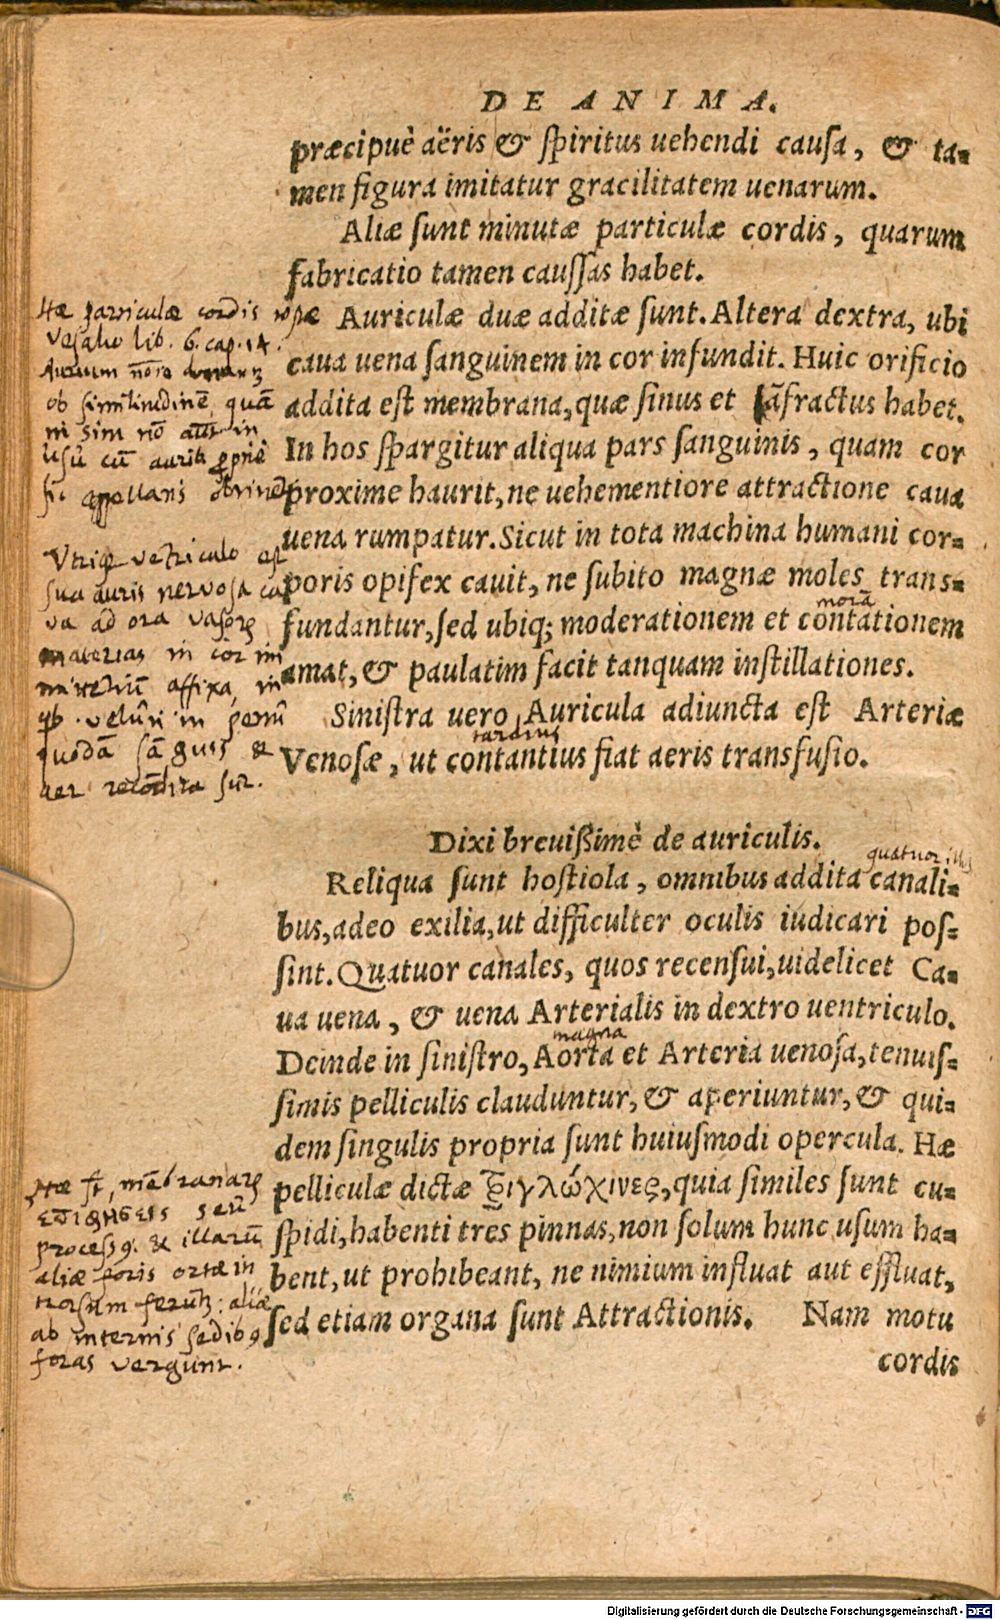 DE ANIMA.
præcipuè aëris & spiritus uehendi causa, & ta-
men figura imitatur gracilitatem uenarum.
Aliæ sunt minutæ particulæ cordis, quarum
fabricatio tamen caussas habet.
Auriculæ duæ additæ sunt. Altera dextra, ubi
caua uena sanguinem in cor infundit. Huic orificio
addita est membrana, quæ sinus et āfractus habet.
In hos spargitur aliqua pars sanguinis, quam cor
proxime haurit, ne uehementiore attractione caua
uena rumpatur. Sicut in tota machina humani cor-
poris opifex cauit, ne subito magnæ moles trans-
morā
fundantur, sed ubiq; moderationem et contationem
amat, & paulatim facit tanquam instillationes.
Sinistra uero Auricula adiuncta est Arteriæ
tardius
Venosæ, ut contantius fiat aeris transfusio.
Dixi breuißimè de auriculis.
quatuor illis
Reliqua sunt hostiola, omnibus addita canali-
bus, adeo exilia, ut difficulter oculis iudicari pos-
sint. Quatuor canales, quos recensui, uidelicet Ca-
ua uena, & uena Arterialis in dextro uentriculo.
magna
Deinde in sinistro, Aorta et Arteria uenosa, tenuis-
simis pelliculis clauduntur, & aperiuntur, & qui-
dem singulis propria sunt huiusmodi opercula. Hæ
pelliculæ dictæ τριγλώχινες, quia similes sunt cu-
spidi, habenti tres pinnas, non solum hunc usum ha-
bent, ut prohibeant, ne nimium influat aut effluat,
sed etiam organa sunt Attractionis. Nam motu
cordis
Hæ particulæ cordis
Vesalio lib. 6. cap. 14.
Aurium
ob similitudinē, quā
in
usu cū auriū
appellans
Vtriq; vētriculo est
sua auris nervosa ca
va ad ora vasorū
materias in cor im
affixa, in
veluti in penu
quodā sāguis &
aer recōdita sūt.
Hæ sūt mēbranarū
seu
process9. & illarū
aliæ foris ortæ in
trorsum ferūt: aliæ
ab internis sedib9
foras vergunt.
Digitalisierung gefördert durch die Deutsche Forschungsgemeinschaft - DFG